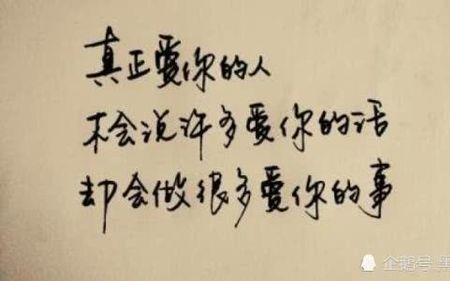 真正爱你的人
不会说许多爱你的话
却会做很多爱你的事
企鹅号